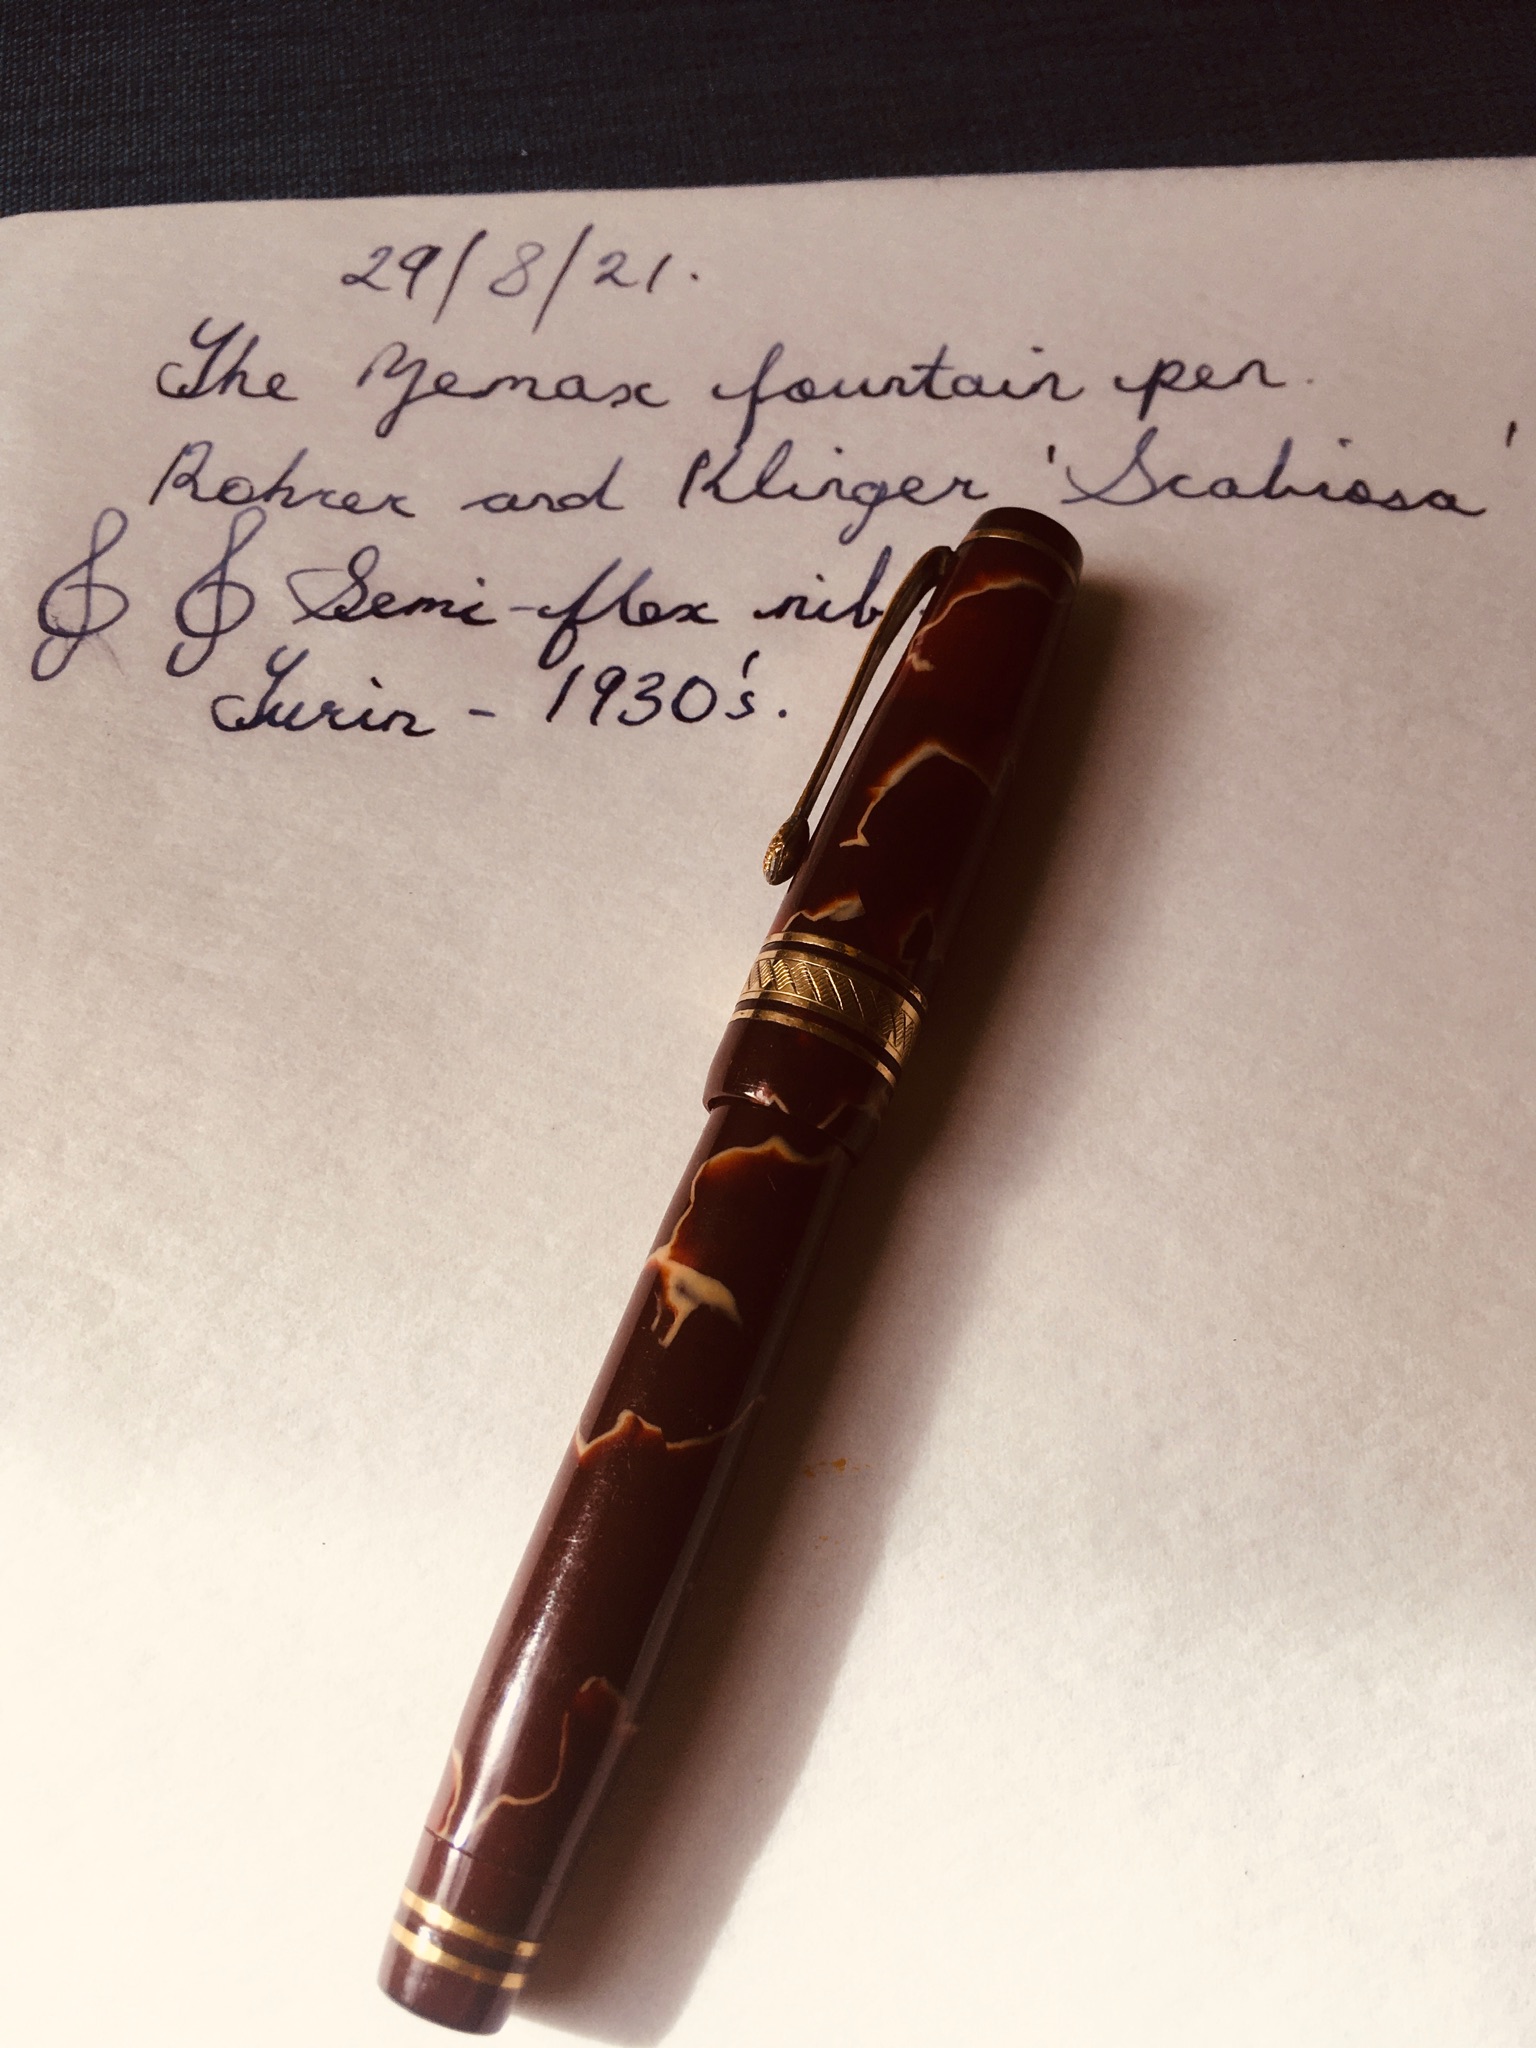 29/8/21.
The Yemax fountain pen.
Rohrer and Klinger 'Scabiosa'
Semi-flex nib.
Turin - 1930's.